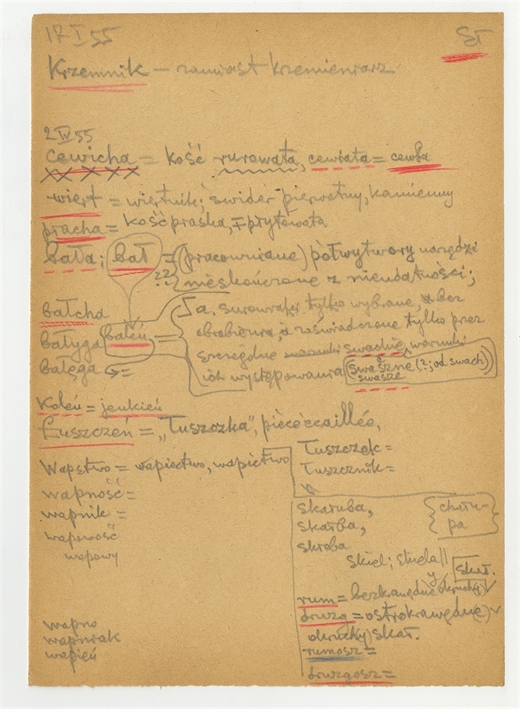 17 I 55
ST
Krzemnik — zamiast krzemieniarz
2 IV 55
cewicha = kość rurowata, cewiata = cewba
wiert = wiertnik; świder pierwotny, kamienny
pracha = kość praska, przytwota
bała; bał = (pracowniane) półwytwory narzędzi
?? nieskończone z nieudatności;
bałcha
a. surowiaki tylko wybrane, a bez
bałyga baleń =
obrabiania, a zaświadczone tylko przez
bałęga =
szczególne swadnie, warunki
ich występowania (swaszne (?; od swach)
swasze
Koleń = jeukień
Łuszczeń = „Łuszczka", pièce écaillée,
Łuszczek =
Wapstwo = wapiectwo, wapictwo
Łusznik =
wapność =
wapnik =
wapowość
wapowy
skałuba,
skałba,
skroba
{chału-
pa}
skiel; studa || skał.
rum = bezkrawędne okruchy
druzg = ostrokrawędne
okruchy skał.
rumosz =
druzgosz =
wapno
wapniak
wapień